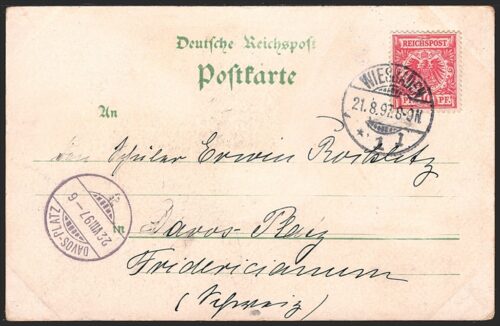 Deutsche Reichspost
Postkarte
REICHSPOST
PF.
WIESBADEN
21.8.97. 8-9N.
* 1 1
An
den Schüler Erwin
DAVOS-PLATZ
22.VIII.97-6
in Davos-Platz
Fridericianum
(Schweiz)